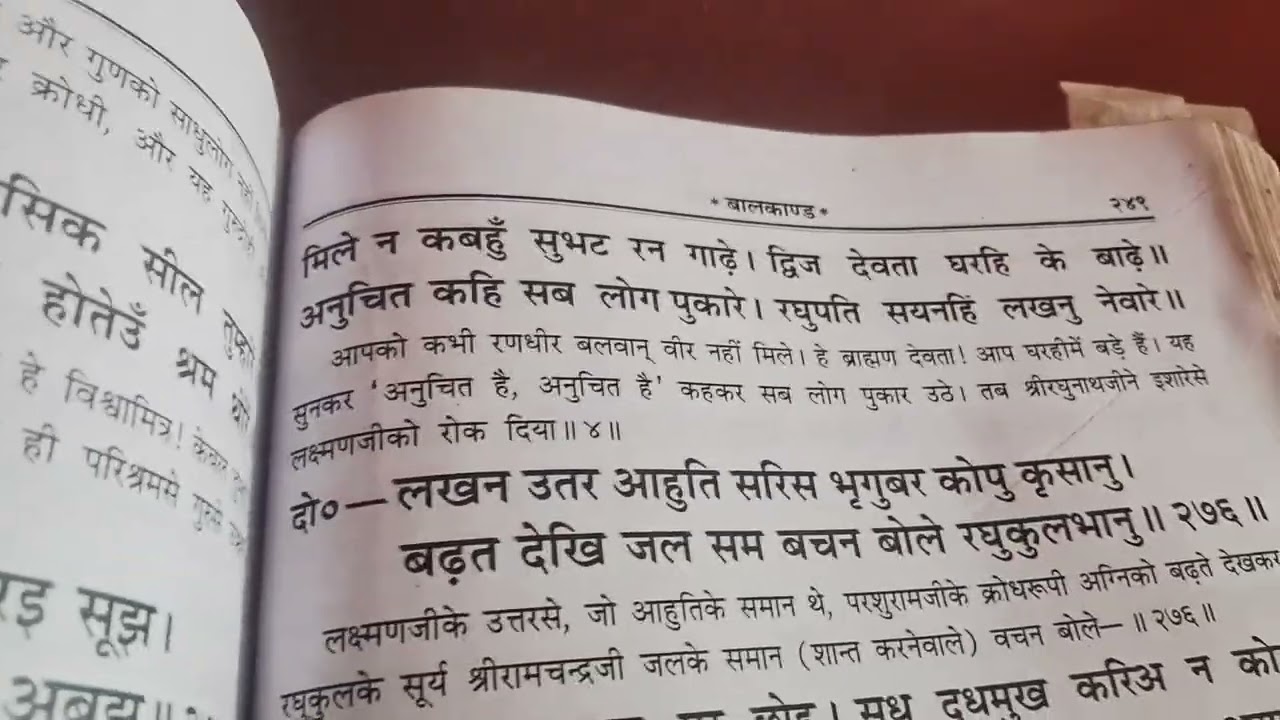 और गुणको साधुलोग नहीं
क्रोधी, और यह गुरुद्रोही
सिक सील तुम्हारें
होतेउँ श्रम थोरें
हे विश्वामित्र! केवल
ही परिश्रमसे गुरुसे
रइ सूझ।
अबूझ॥
* बालकाण्ड *
२४९
मिले न कबहुँ सुभट रन गाढ़े। द्विज देवता घरहि के बाढ़े॥
अनुचित कहि सब लोग पुकारे। रघुपति सयनहिं लखनु नेवारे॥
आपको कभी रणधीर बलवान् वीर नहीं मिले। हे ब्राह्मण देवता! आप घरहीमें बड़े हैं। यह
सुनकर 'अनुचित है, अनुचित है' कहकर सब लोग पुकार उठे। तब श्रीरघुनाथजीने इशारेसे
लक्ष्मणजीको रोक दिया॥ ४॥
दो०—लखन उतर आहुति सरिस भृगुबर कोपु कृसानु।
बढ़त देखि जल सम बचन बोले रघुकुलभानु॥ २७६॥
लक्ष्मणजीके उत्तरसे, जो आहुतिके समान थे, परशुरामजीके क्रोधरूपी अग्निको बढ़ते देखकर
रघुकुलके सूर्य श्रीरामचन्द्रजी जलके समान (शान्त करनेवाले) वचन बोले—॥ २७६॥
छोहू। सूध दूधमुख करिअ न को